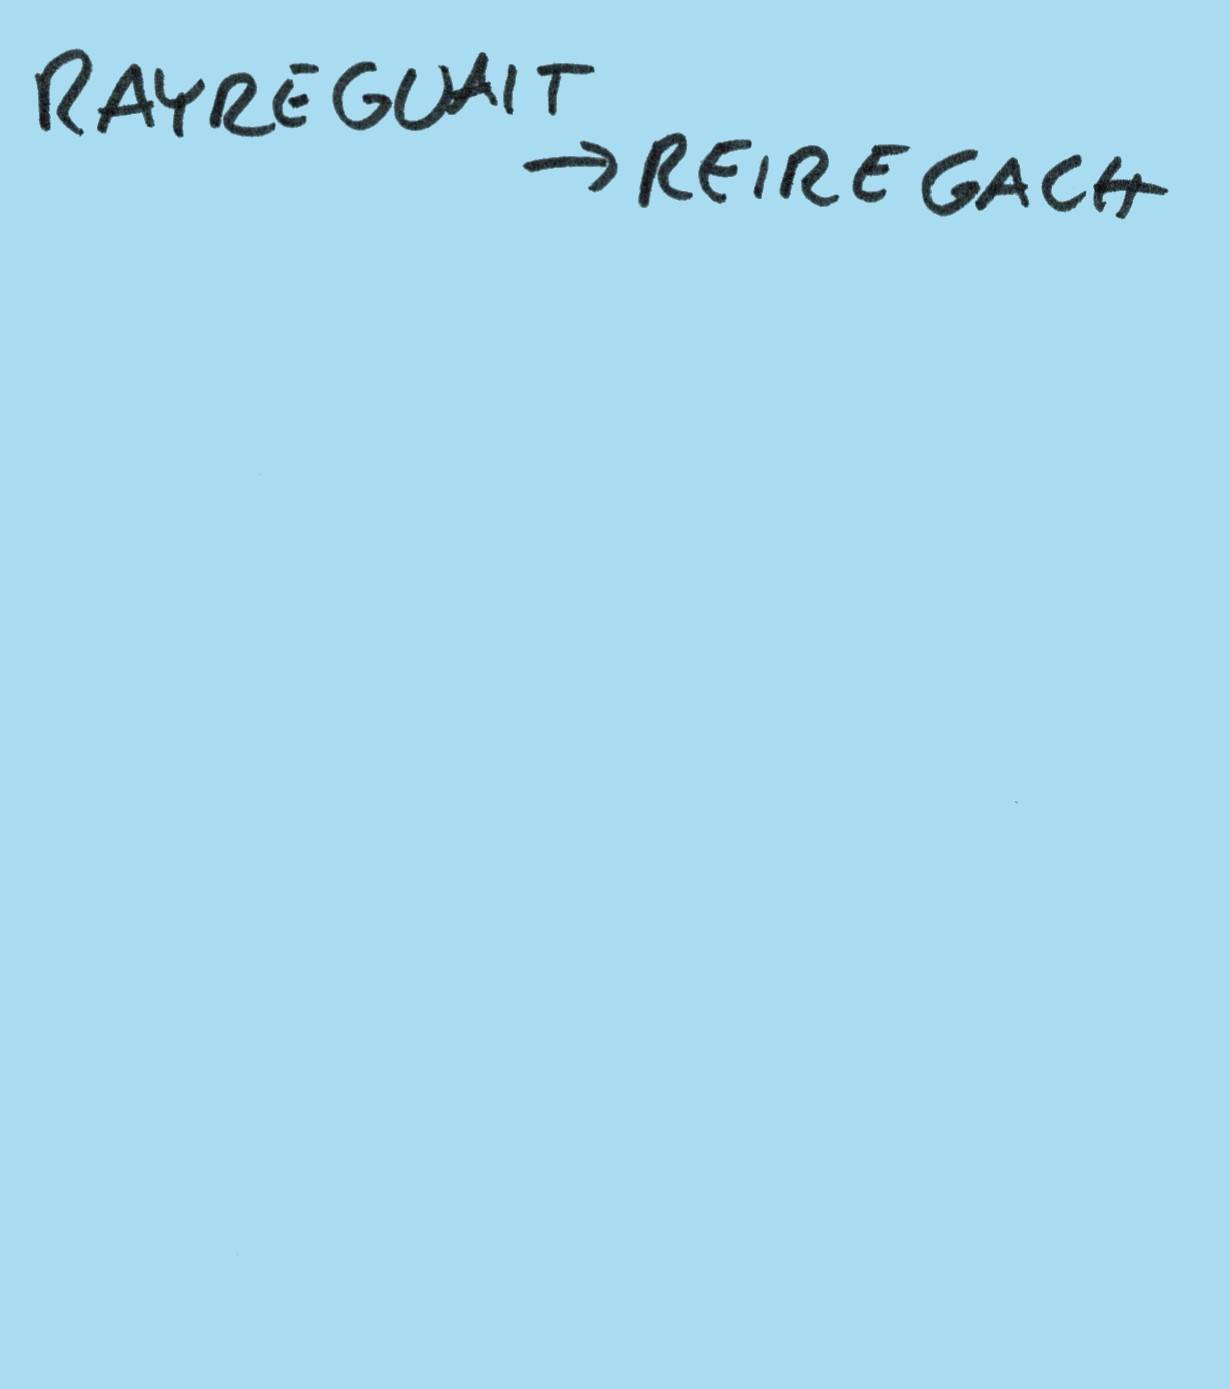 RAYREGUAIT
→ REIREGACH